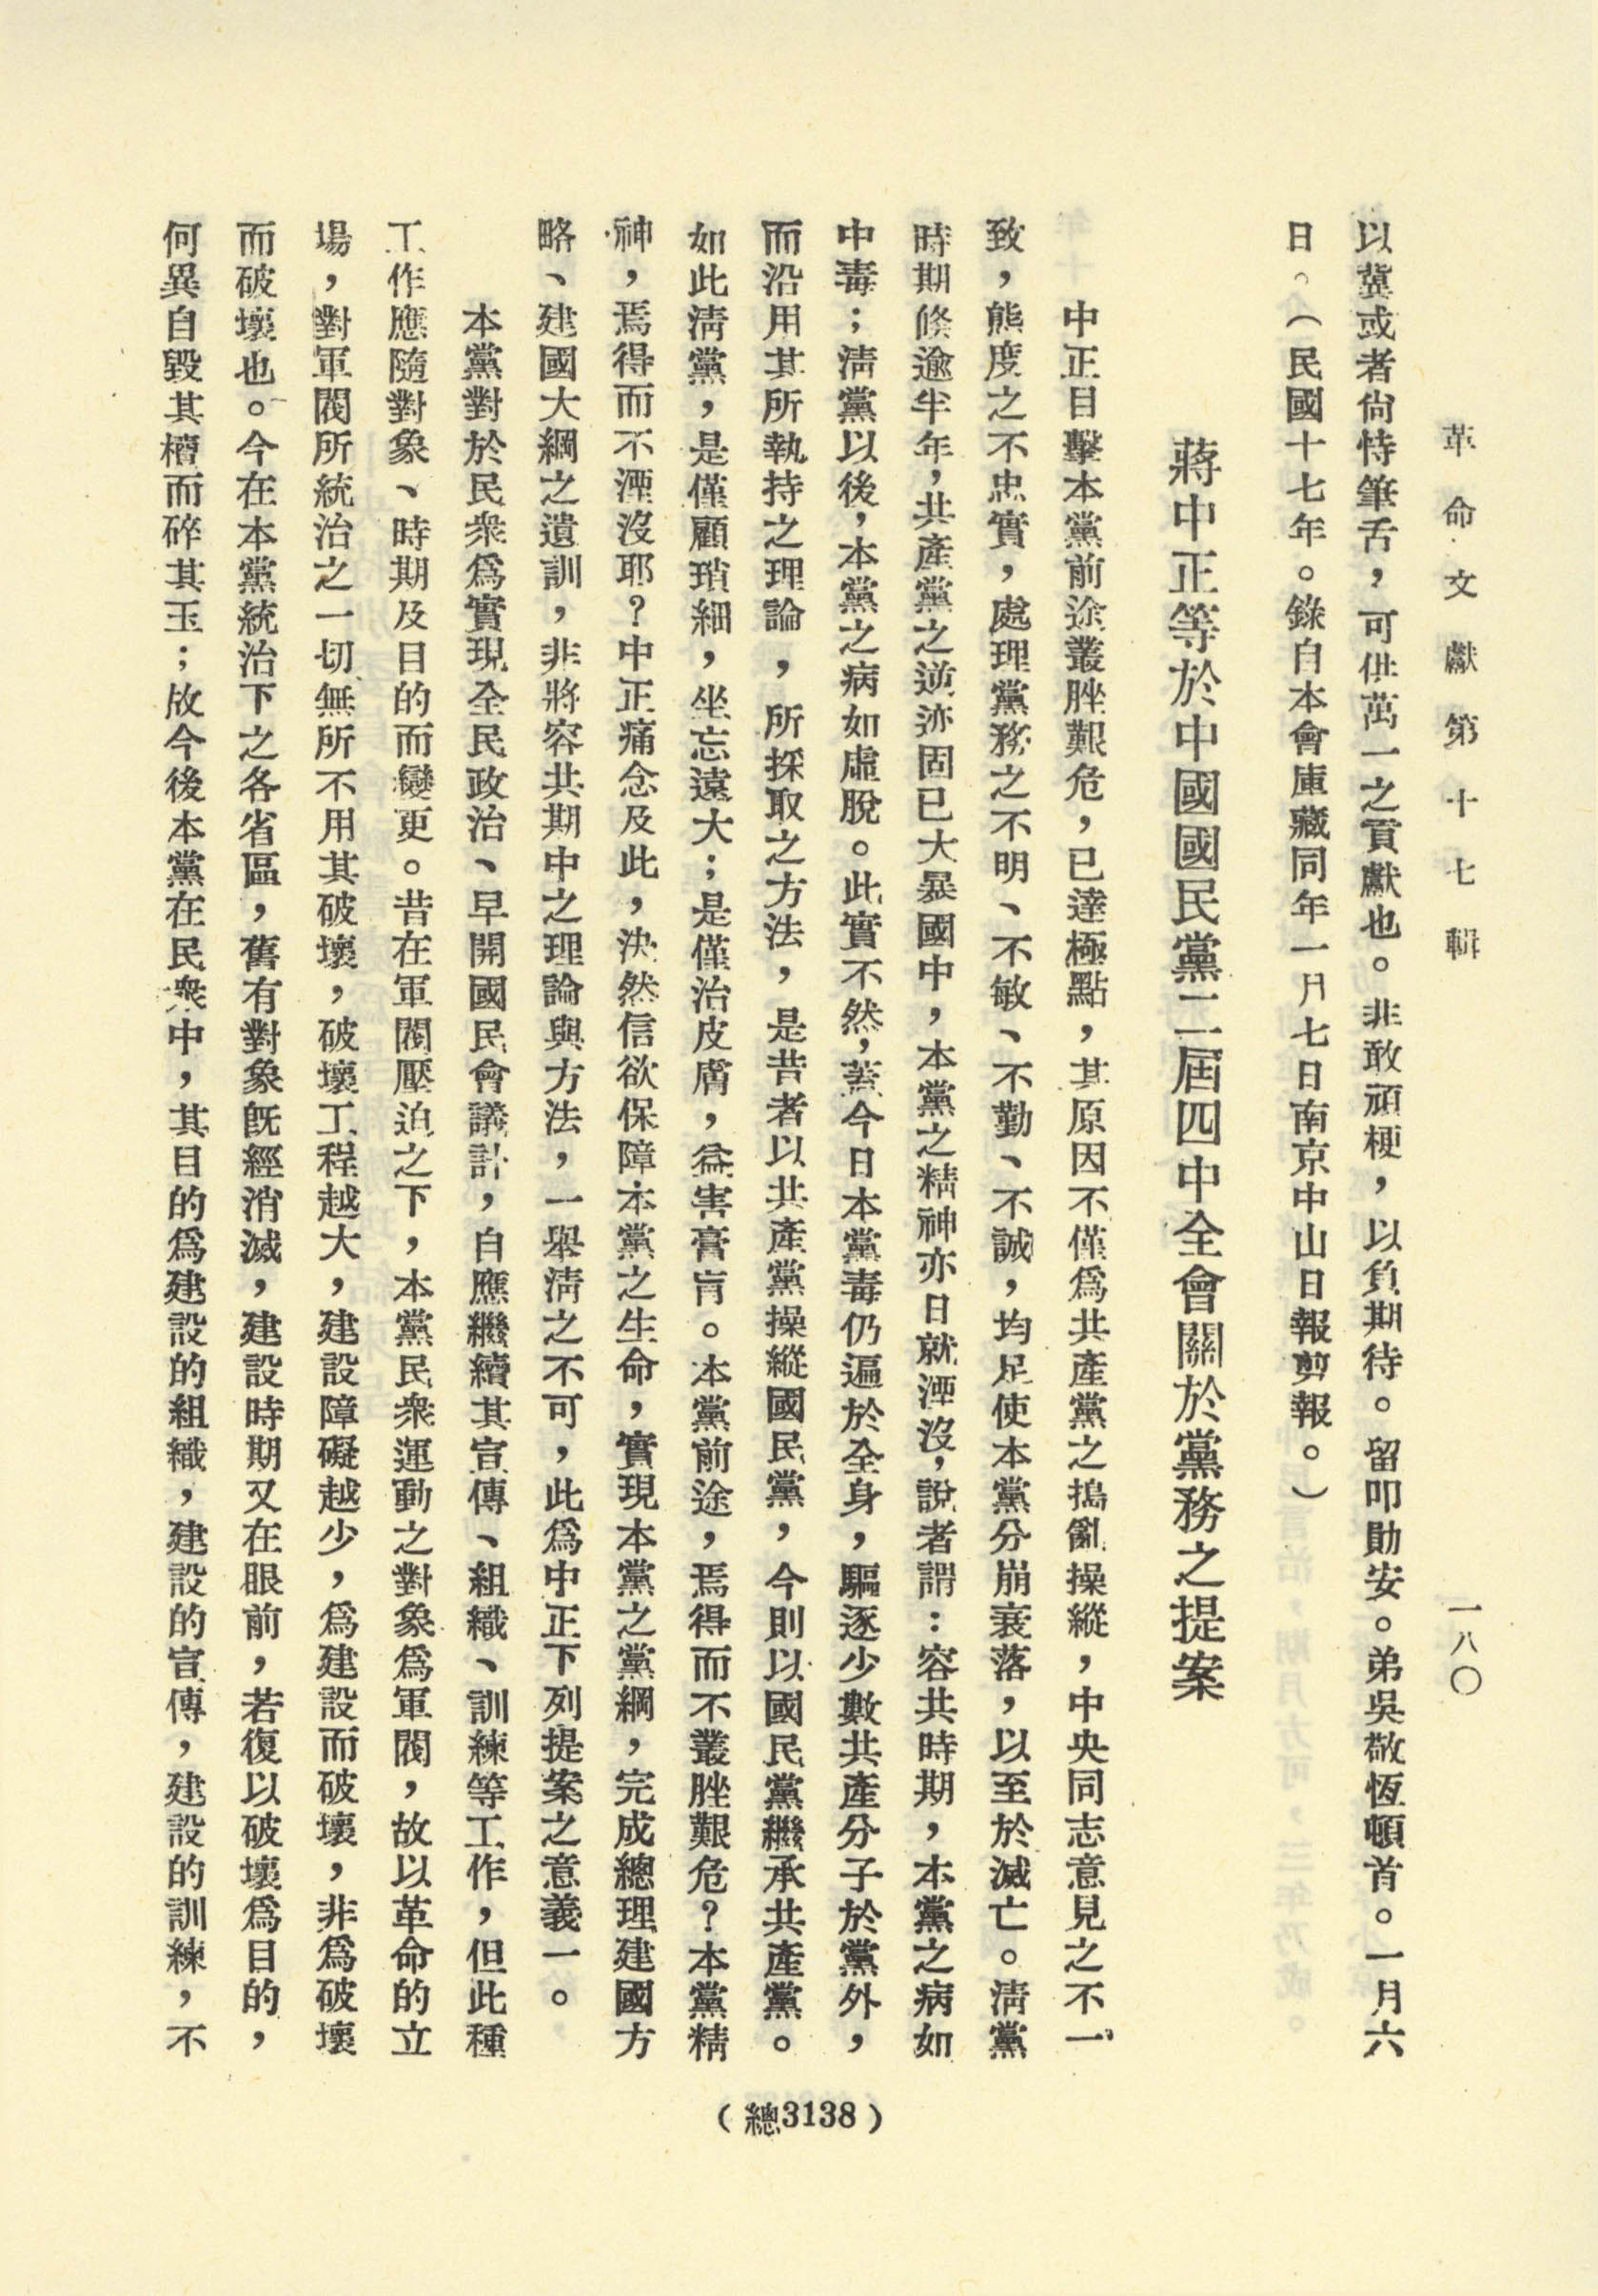 革命文獻第十七輯
一八〇
以冀或者尙恃筆舌，可供萬一之貢獻也。非敢頑梗，以負期待。留叩勛安。弟吳敬恆頓首。一月六
日。（民國十七年。錄自本會庫藏同年一月七日南京中山日報剪報。）
蔣中正等於中國國民黨二屆四中全會關於黨務之提案
中正目擊本黨前途叢脞艱危，已達極點，其原因不僅爲共產黨之搗亂操縱，中央同志意見之不一
致，態度之不忠實，處理黨務之不明、不敏、不勤、不誠，均足使本黨分崩衰落，以至於滅亡。淸黨
時期倏逾半年，共產黨之逆跡固已大暴國中，本黨之精神亦日就湮沒，說者謂：容共時期，本黨之病如
中毒；淸黨以後，本黨之病如虛脫。此實不然，蓋今日本黨毒仍遍於全身，驅逐少數共產分子於黨外，
而沿用其所執持之理論，所採取之方法，是昔者以共產黨操縱國民黨，今則以國民黨繼承共產黨。
如此淸黨，是僅顧瑣細，坐忘遠大；是僅治皮膚，益害膏肓。本黨前途，焉得而不叢脞艱危？本黨精
神，焉得而不湮沒耶？中正痛念及此，決然信欲保障本黨之生命，實現本黨之黨綱，完成總理建國方
略、建國大綱之遺訓，非將容共期中之理論與方法，一舉淸之不可，此爲中正下列提案之意義一。
本黨對於民衆爲實現全民政治、早開國民會議計，自應繼續其宣傳、組織、訓練等工作，但此種
工作應隨對象、時期及目的而變更。昔在軍閥壓迫之下，本黨民衆運動之對象爲軍閥，故以革命的立
場，對軍閥所統治之一切無所不用其破壞，破壞工程越大，建設障礙越少，爲建設而破壞，非爲破壞
而破壞也。今在本黨統治下之各省區，舊有對象旣經消滅，建設時期又在眼前，若復以破壞爲目的，
何異自毀其櫝而碎其玉；故今後本黨在民衆中，其目的爲建設的組織，建設的宣傳，建設的訓練，不
（總3138）